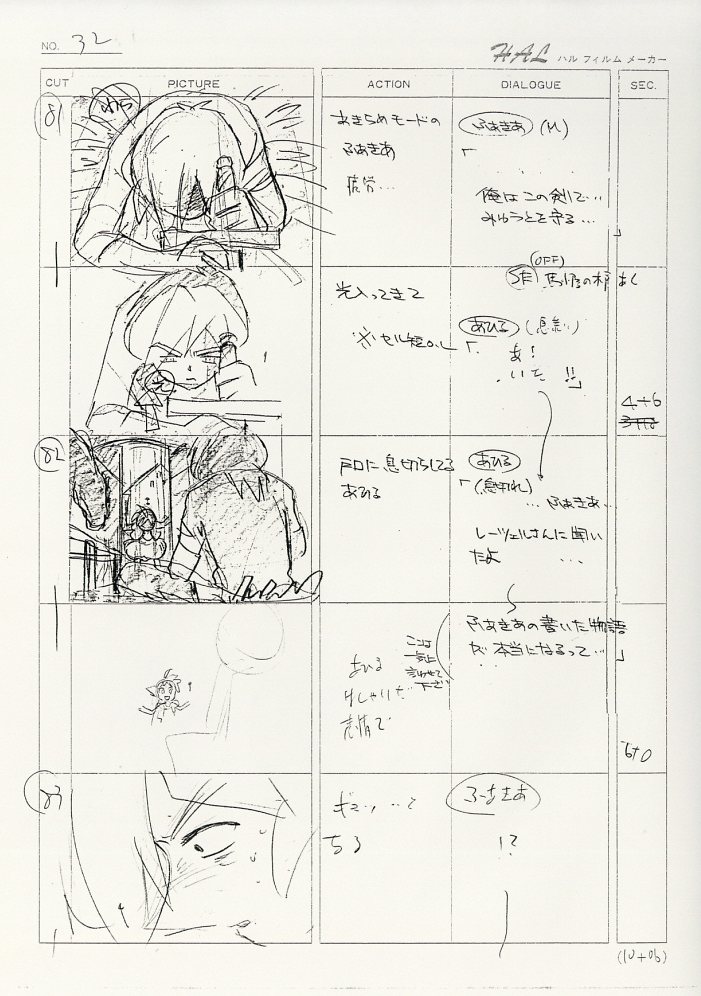 NO. 32
HAL ハル フィルム メーカー
CUT
PICTURE
ACTION
DIALOGUE
SEC.
81
あきらめモードの
ふぁきあ
疲労...
ふぁきあ (M)
「
俺はこの剣で...
みゅうとを守る...
」
(OFF)
SE
光入ってきて
あひる
「
あ!
いた!!」
4+6
82
戸口に息切らしてる
あひる
あひる
「(息切れ)
... ふぁきあ..
レーツェルさんに聞い
たよ ...
ふぁきあの書いた物語
が本当になるって...
」
ここは
一気に
言わせて
下さい
あひる
うれしそうな
表情で
6+0
83
ふぁきあ
!?
(10+06)